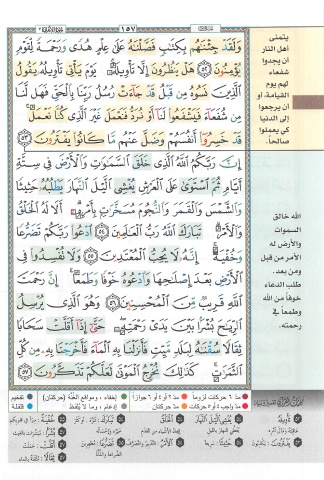 ١٥٧
وَلَقَدْ جِئْنَٰهُم بِكِتَٰبٍ فَصَّلْنَٰهُ عَلَىٰ عِلْمٍ هُدًى وَرَحْمَةً لِّقَوْمٍ
يُؤْمِنُونَ ﴿٥٢﴾ هَلْ يَنظُرُونَ إِلَّا تَأْوِيلَهُۥ ۚ يَوْمَ يَأْتِى تَأْوِيلُهُۥ يَقُولُ
ٱلَّذِينَ نَسُوهُ مِن قَبْلُ قَدْ جَآءَتْ رُسُلُ رَبِّنَا بِٱلْحَقِّ فَهَل لَّنَا
مِن شُفَعَآءَ فَيَشْفَعُوا۟ لَنَآ أَوْ نُرَدُّ فَنَعْمَلَ غَيْرَ ٱلَّذِى كُنَّا نَعْمَلُ ۚ
قَدْ خَسِرُوٓا۟ أَنفُسَهُمْ وَضَلَّ عَنْهُم مَّا كَانُوا۟ يَفْتَرُونَ ﴿٥٣﴾
إِنَّ رَبَّكُمُ ٱللَّهُ ٱلَّذِى خَلَقَ ٱلسَّمَٰوَٰتِ وَٱلْأَرْضَ فِى سِتَّةِ
أَيَّامٍ ثُمَّ ٱسْتَوَىٰ عَلَى ٱلْعَرْشِ يُغْشِى ٱلَّيْلَ ٱلنَّهَارَ يَطْلُبُهُۥ حَثِيثًا
وَٱلشَّمْسَ وَٱلْقَمَرَ وَٱلنُّجُومَ مُسَخَّرَٰتٍۭ بِأَمْرِهِۦٓ ۗ أَلَا لَهُ ٱلْخَلْقُ
وَٱلْأَمْرُ ۗ تَبَارَكَ ٱللَّهُ رَبُّ ٱلْعَٰلَمِينَ ﴿٥٤﴾ ٱدْعُوا۟ رَبَّكُمْ تَضَرُّعًا
وَخُفْيَةً ۚ إِنَّهُۥ لَا يُحِبُّ ٱلْمُعْتَدِينَ ﴿٥٥﴾ وَلَا تُفْسِدُوا۟ فِى
ٱلْأَرْضِ بَعْدَ إِصْلَٰحِهَا وَٱدْعُوهُ خَوْفًا وَطَمَعًا ۚ إِنَّ رَحْمَتَ
ٱللَّهِ قَرِيبٌ مِّنَ ٱلْمُحْسِنِينَ ﴿٥٦﴾ وَهُوَ ٱلَّذِى يُرْسِلُ
ٱلرِّيَٰحَ بُشْرًۢا بَيْنَ يَدَىْ رَحْمَتِهِۦ ۖ حَتَّىٰٓ إِذَآ أَقَلَّتْ سَحَابًا
ثِقَالًا سُقْنَٰهُ لِبَلَدٍ مَّيِّتٍ فَأَنزَلْنَا بِهِ ٱلْمَآءَ فَأَخْرَجْنَا بِهِۦ مِن كُلِّ
ٱلثَّمَرَٰتِ ۚ كَذَٰلِكَ نُخْرِجُ ٱلْمَوْتَىٰ لَعَلَّكُمْ تَذَكَّرُونَ ﴿٥٧﴾
يتمنى
أهل النار
أن يجدوا
شفعاء
لهم يوم
القيامة، أو
أن يرجعوا
إلى الدنيا
كي يعملوا
صالحاً.
الله خالق
السموات
والأرض له
الأمر من قبل
ومن بعد.
طلب الدعاء
خوفاً من الله
وطمعاً في
رحمته.